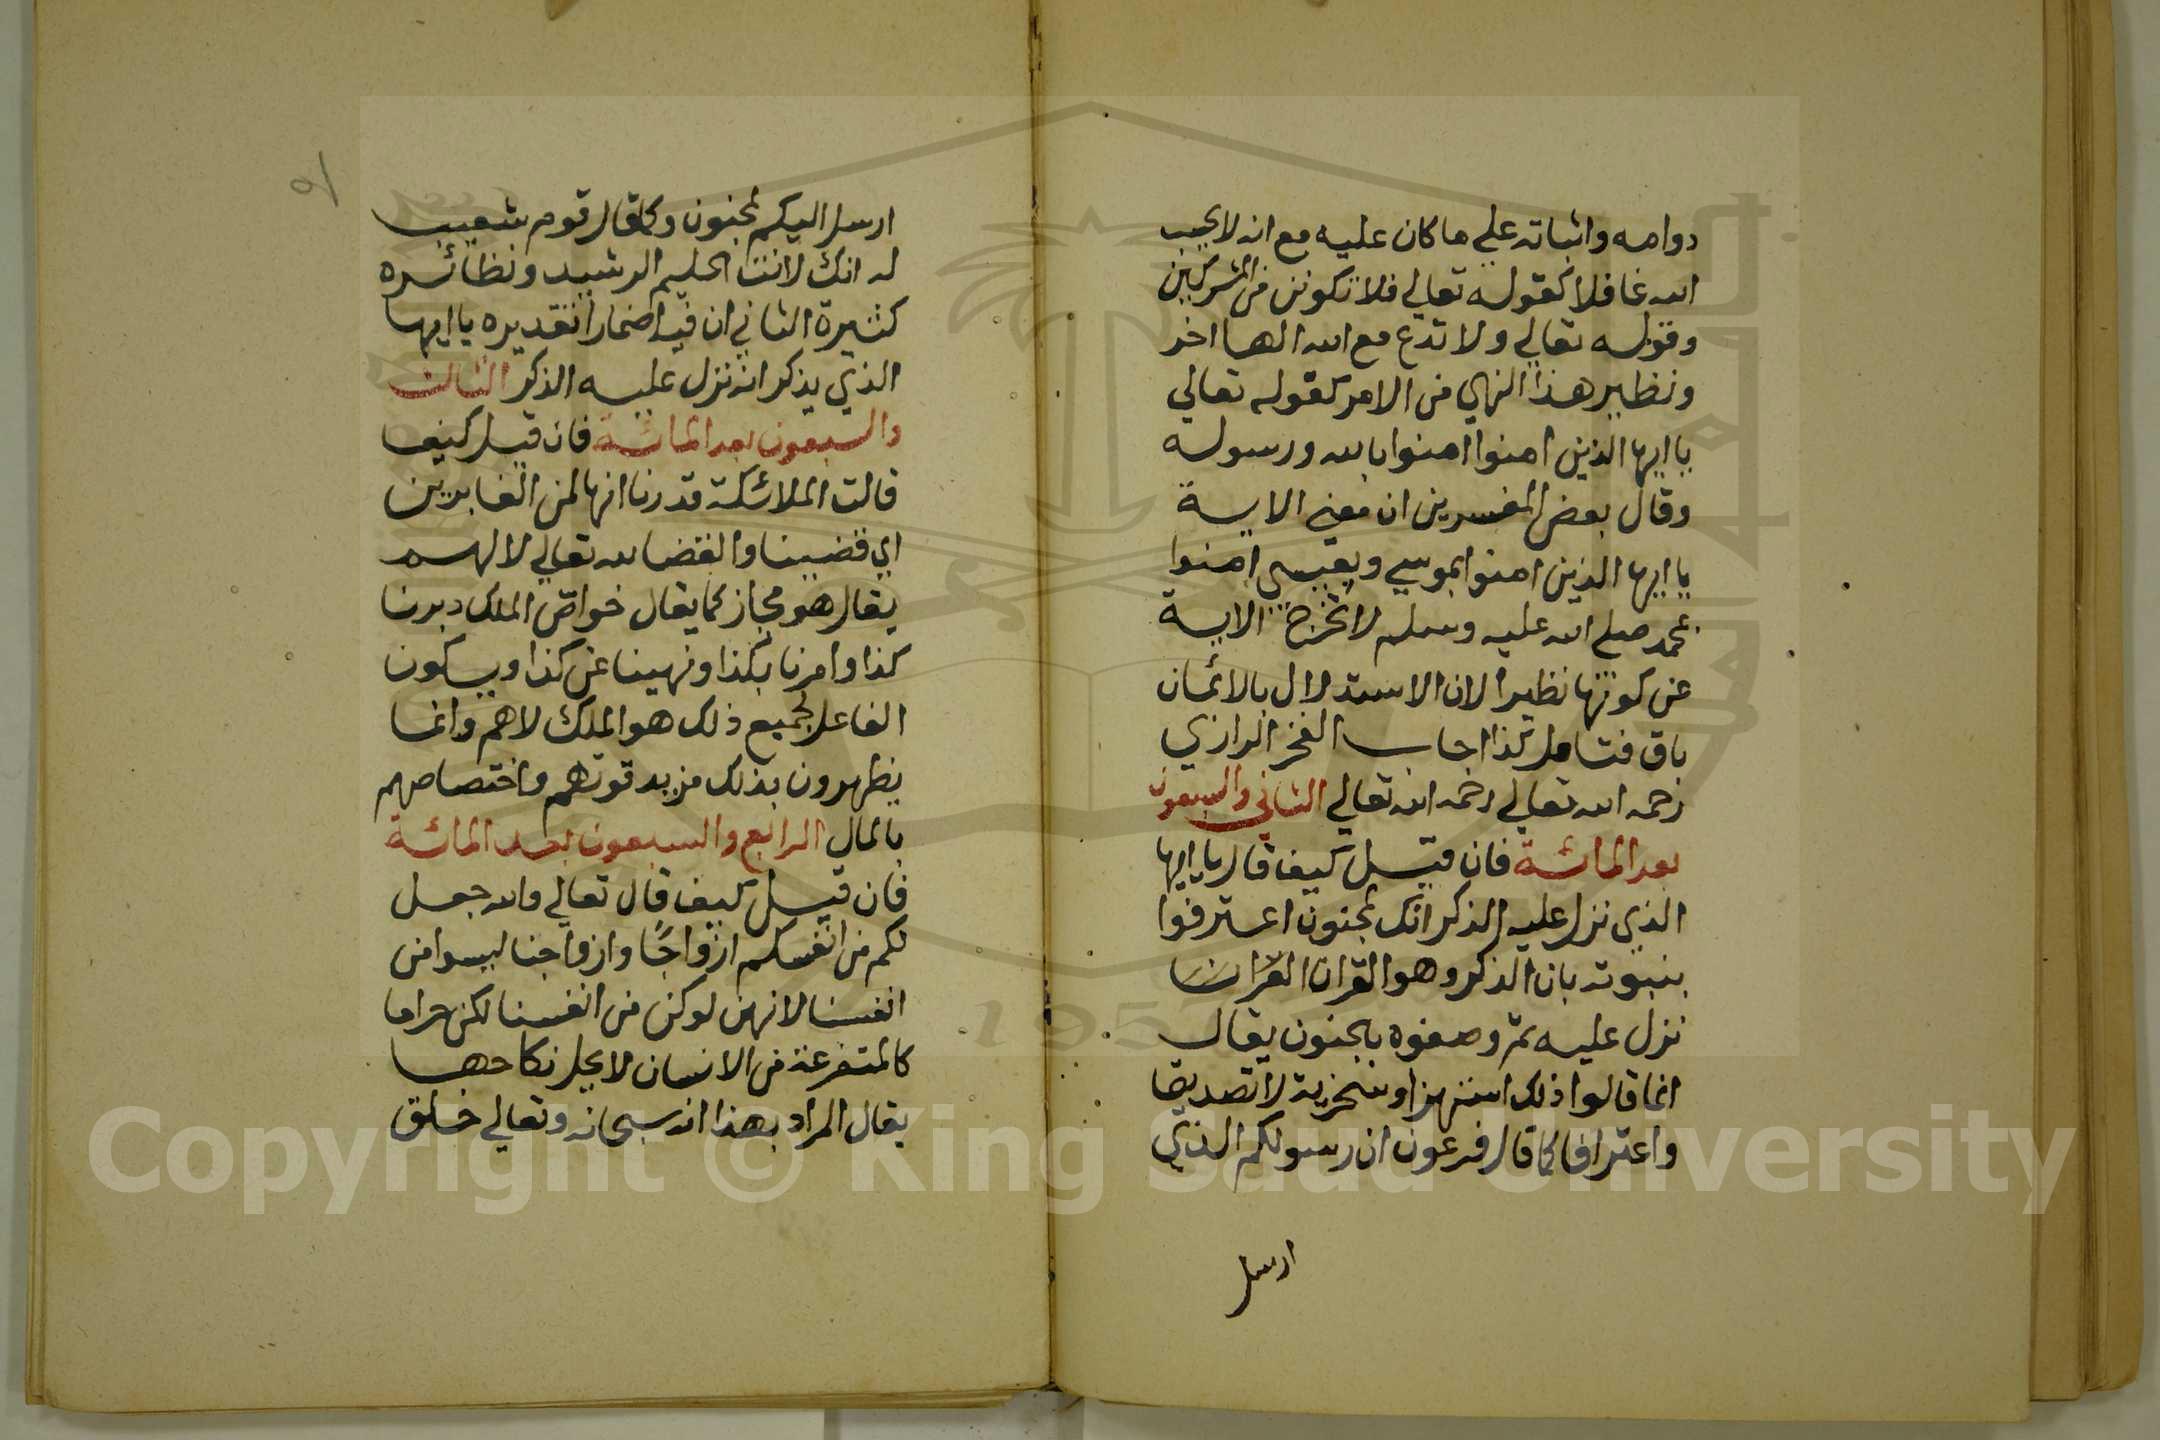 دوامه واثباته علي ما كان عليه مع انه لا يحب
الله غافلا كقوله تعالي فلا تكونن من المشركين
وقوله تعالي ولا تدع مع الله الها اخر
ونظير هذا النهي من الامر كقوله تعالي
يا ايها الذين امنوا امنوا بالله ورسوله
وقال بعض المفسرين ان معني الاية
يا ايها الذين امنوا بموسي وبعيسي امنوا
بمحمد صلي الله عليه وسلم لا تخرج الاية
عن كونها نظيرا لان الاستدلال بالائمان
باق فتامل كذا اجاب الفخر الرازي
رحمه الله تعالي رحمه الله تعالي الثاني والسبعون
بعد المائة فان قيل كيف قال يا ايها
الذي نزل عليه الذكر انك لمجنون اعترفوا
بنبوته بان الذكر وهو القران القران
نزل عليه ثم وصفوه بالجنون يقال
انما قالوا ذلك استهزا وسخرية لا تصديقا
واعترافا كما قال فرعون ان رسولكم الذي
ارسل
ارسل اليكم لمجنون وكما قال قوم شعيب
له انك لانت الحليم الرشيد ونظائره
كثيرة الثاني ان فيه اضمارا تقديره يا ايها
الذي يذكر انه نزل عليه الذكر الثالث
والسبعون بعد المائة فان قيل كيف
قالت الملائكة قدرنا انها لمن الغابرين
اي قضينا والقضا لله تعالي لا لهم
يقال هو مجاز كما يقال خواص الملك دبرنا
كذا وامرنا بكذا ونهينا عن كذا ويكون
الفاعل لجميع ذلك هو الملك لا هم وانما
يظهرون بذلك مزيد قوتهم واختصاصهم
بالمال الرابع والسبعون بعد المائة
فان قيل كيف قال تعالي والله جعل
لكم من انفسكم ازواجًا وازواجنا ليسوا من
انفسنا لانهن لو كن من انفسنا لكن حراما
كالمتفرعة من الانسان لا يحل نكاحها
يقال المراد بهذا انه سبحانه وتعالي خلق
Copyright © King Saud University
1957